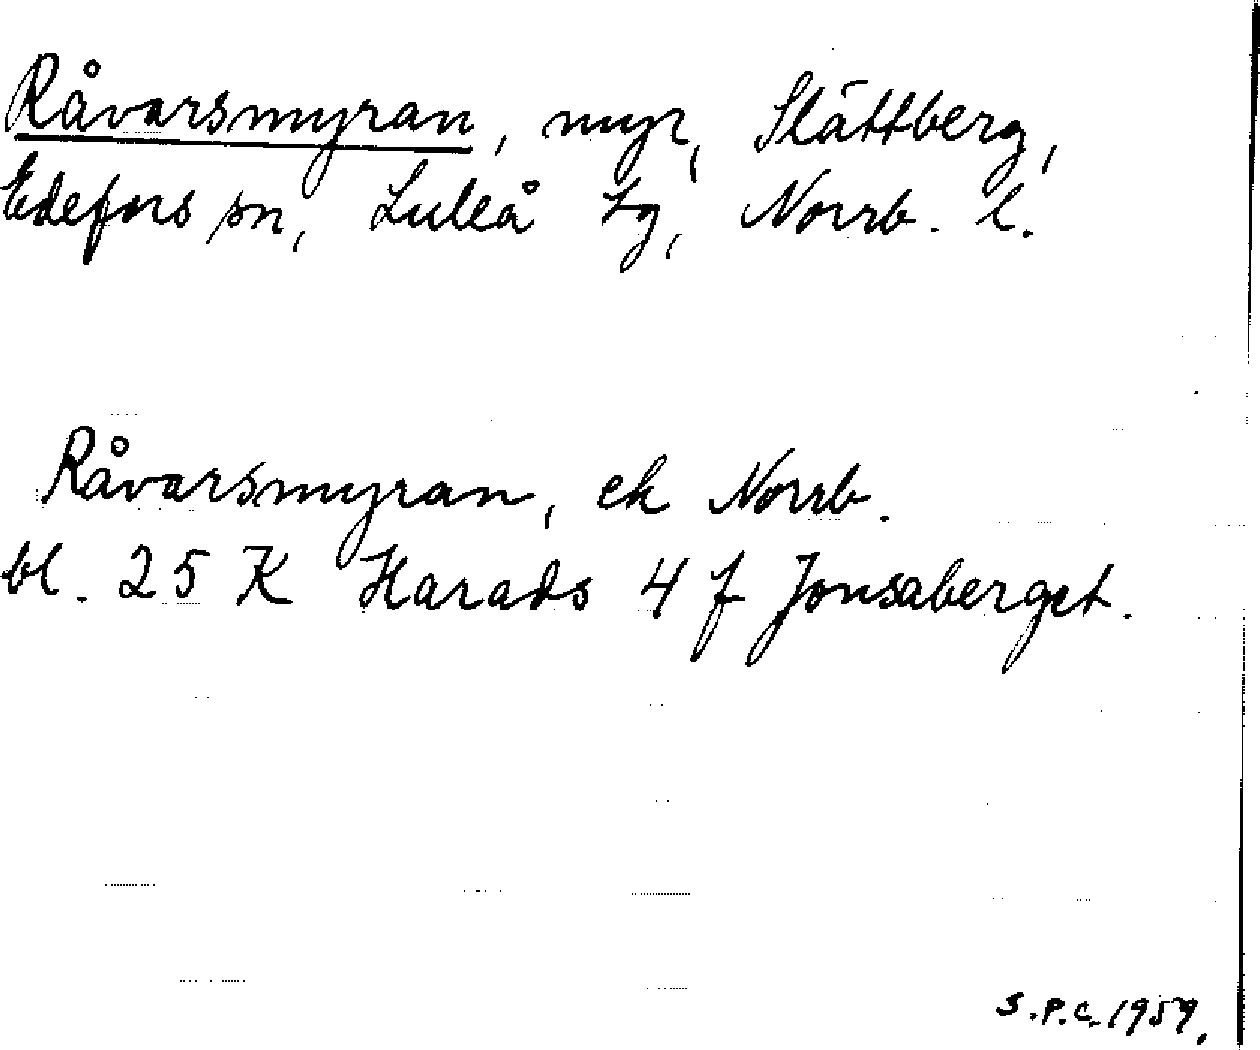 Råvarsmyran, myr, Slättberg,
Edefors sn, Luleå tg, Norrb. l.
Råvarsmyran, ek Norrb.
bl. 25 K Harads 4 f Jonsaberget.
S.P.C. 1959.